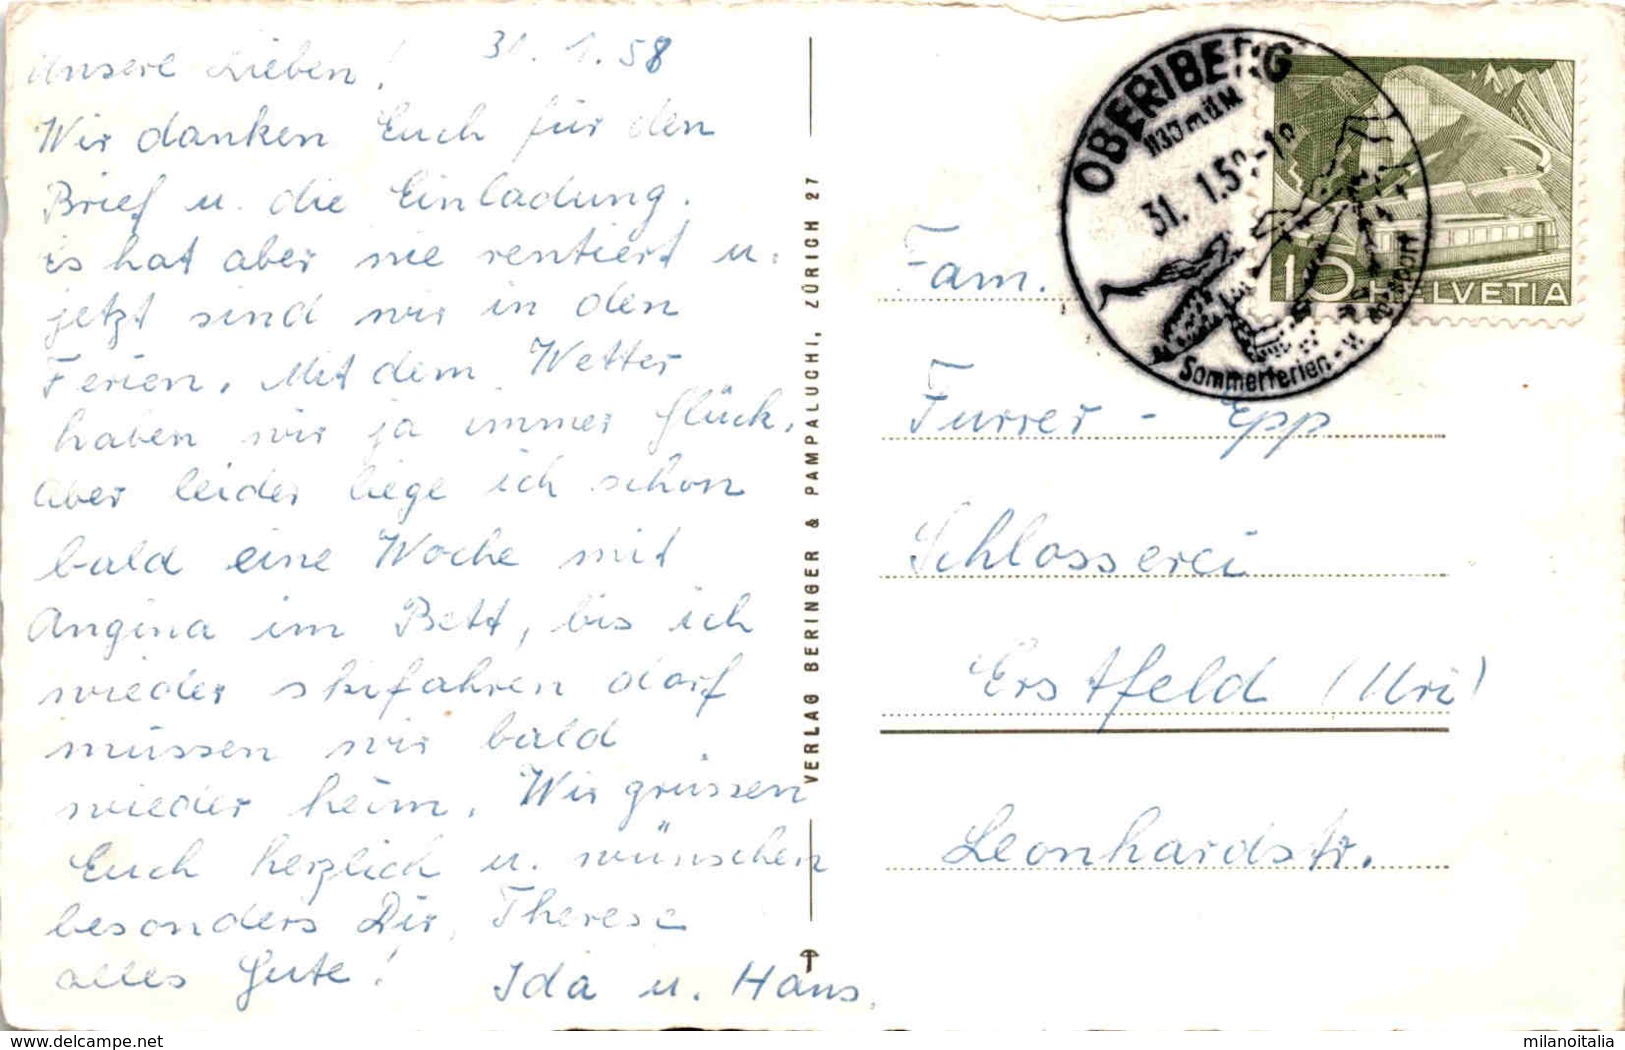 31. 1. 58
Unsere Lieben!
Wir danken Euch für den
Brief u. die Einladung.
Es hat aber nie rentiert u.
jetzt sind wir in den
Ferien. Mit dem Wetter
haben wir ja immer Glück,
aber leider liege ich schon
bald eine Woche mit
Angina im Bett, bis ich
wieder skifahren darf
müssen wir bald
wieder heim. Wir grüssen
Euch herzlich u. wünschen
besonders Dir, Therese
alles Gute!
Ida u. Hans.
VERLAG BERINGER & PAMPALUCHI, ZÜRICH 27
OBERIBERG
1130 m ü M
31. 1.58-18
Sommerferien
HELVETIA
15
Fam.
Furrer - Epp
Schlosserei
Erstfeld (Uri)
Leonhardstr.
www.delcampe.net
milanoitalia